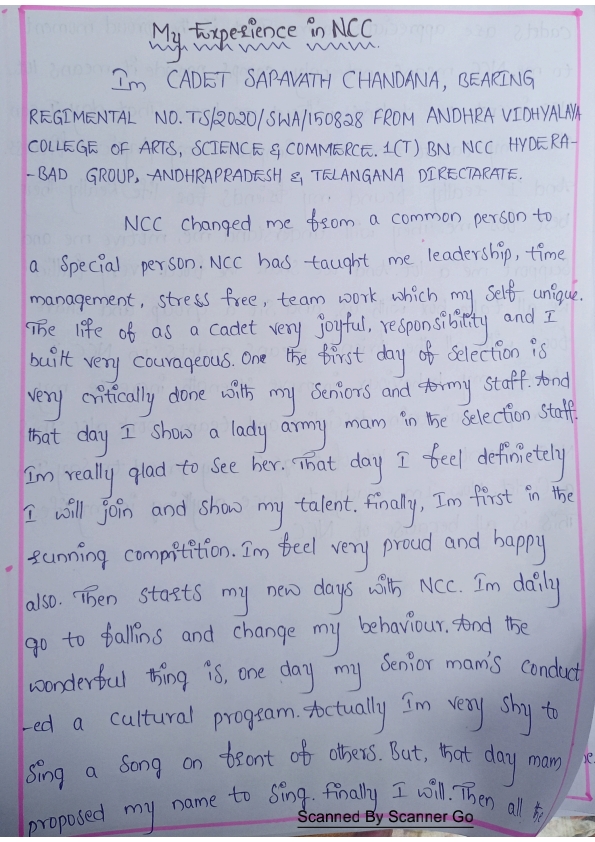 My Experience in NCC.
Im CADET SAPAVATH CHANDANA, BEARING
REGIMENTAL NO. TS/2020/SWA/150828 FROM ANDHRA VIDHYALAYA
COLLEGE OF ARTS, SCIENCE & COMMERCE. 1(T) BN NCC HYDERA-
-BAD GROUP, ANDHRAPRADESH & TELANGANA DIRECTARATE.
NCC changed me from a common person to
a special person. NCC has taught me leadership, time
management, stress free, team work which my self unique.
The life of as a cadet very joyful, responsibility and I
built very courageous. One the first day of selection is
very critically done with my seniors and Army staff. And
that day I show a lady army mam in the selection staff.
Im really glad to see her. That day I feel definietely
I will join and show my talent. finally, Im first in the
running compitition. Im feel very proud and happy
also. Then starts my new days with NCC. Im daily
go to fallins and change my behaviour. And the
wonderful thing is, one day my senior mam's conduct
-ed a cultural program. Actually Im very shy to
sing a song on front of others. But, that day mam
proposed my name to sing. finally I will. Then all the
Scanned By Scanner Go